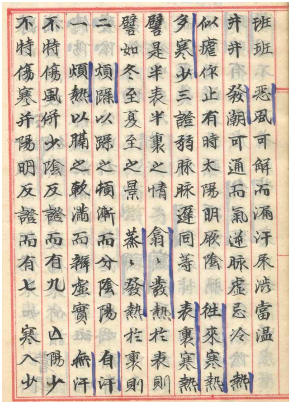 班班不惡風可解而漏汗尿澁當溫
并并發潮可通而氣逆脉虛忌冷熱
似瘧作止有時太陽明厥陰往來寒熱
多寒少三證弱脉脉遲同等表裏寒熱
譬是半表半裏之情翕翕發熱於表則
譬如冬至夏至之景蒸蒸發熱於裏則
二煩躁以躁之煩漸而分陰陽自汗
一煩熱以腸之軟滿而辨虛實無汗
不特傷風併少陰反證而有九亡陽少
不特傷寒并陽明反證而有七寒入少